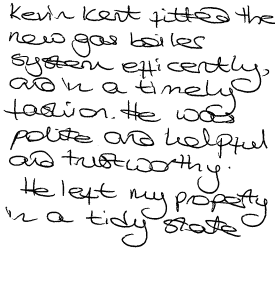 Kevin Kent fitted the
new gas boiler
system efficently,
and in a timely
fashion. He was
polite and helpful
and trustworthy.
He left my property
in a tidy state